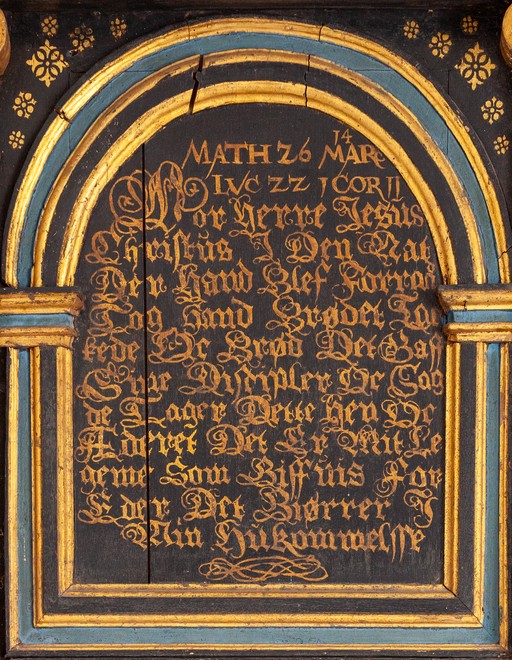 MATH 26 MARC 14
LVC 22 1 COR 11
Vor Herre Jesus
Christus J Den Nat
Der Hand Blef Forraad
Tog Hand Brødet Tac
kede Oc Brød Det Gaff
Sine Discipler Oc Sag
de Tager Dette Hen Oc
Æderet Det Er Mit Le
geme Som Giffuis For
Eder Det Giørrer J
Min Hukommelsse